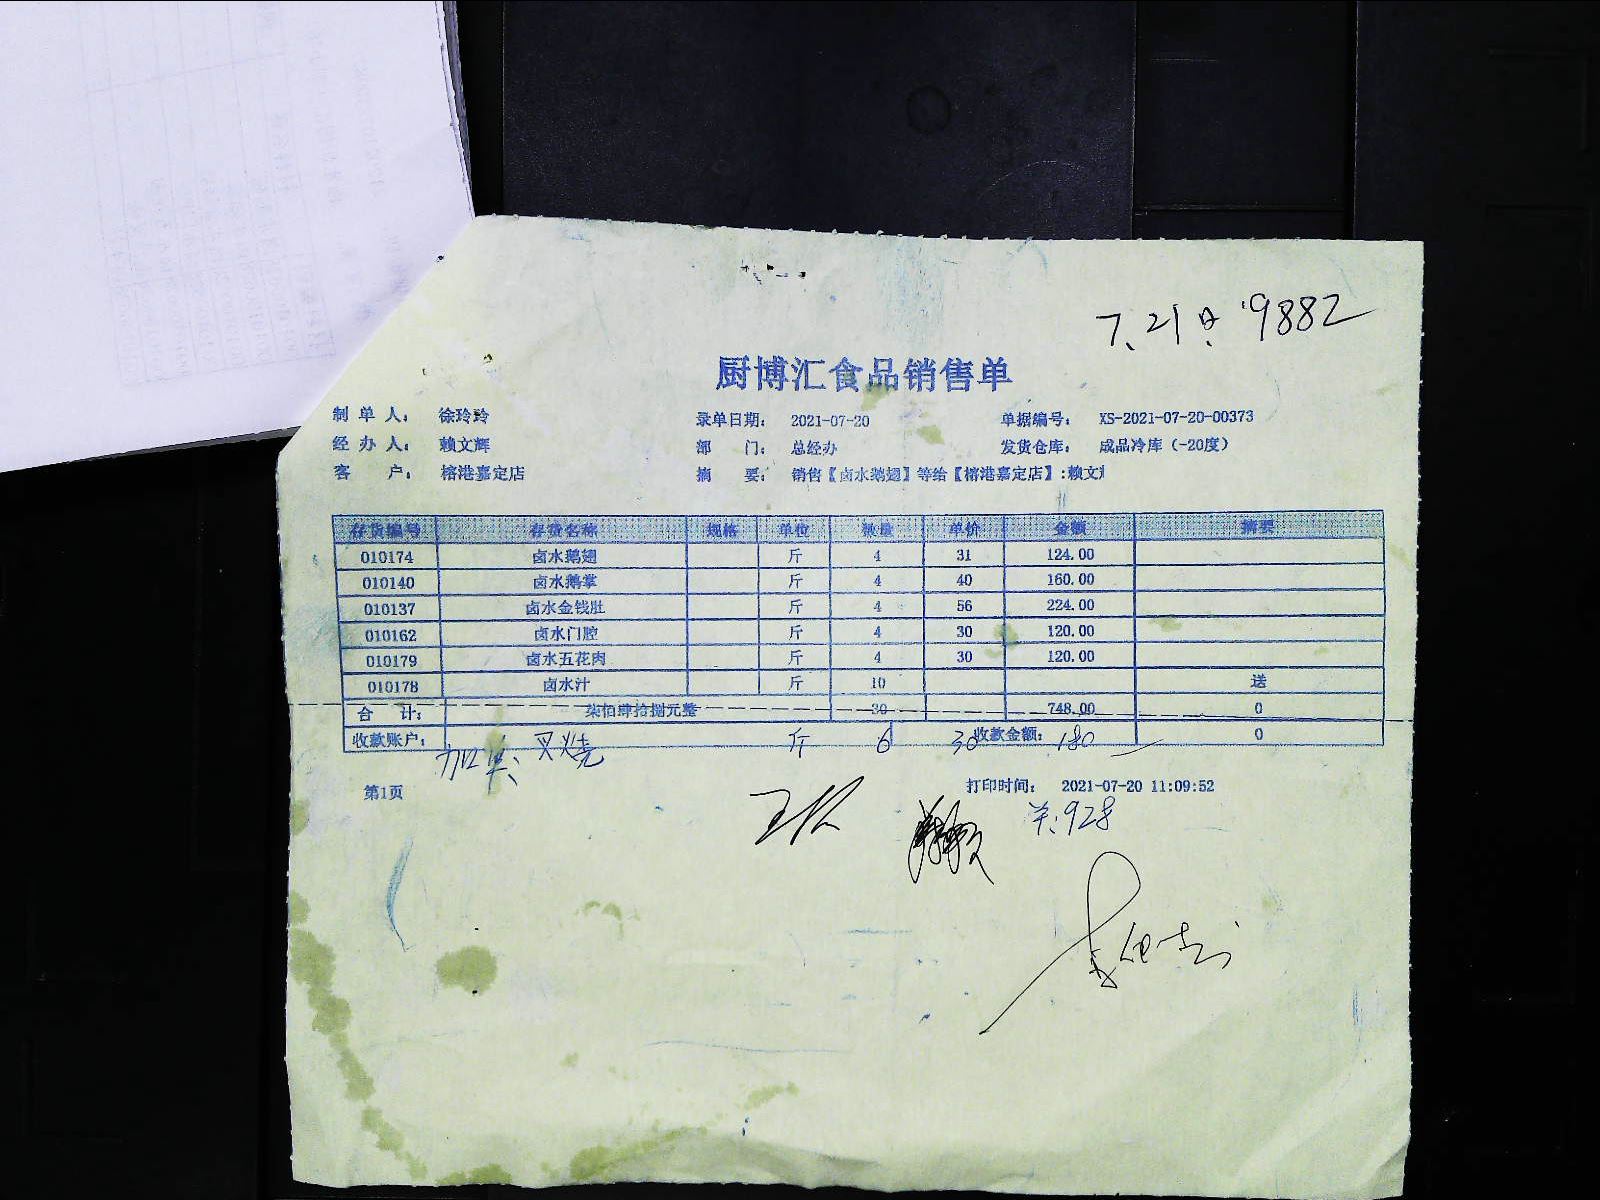 7.21日.9882
厨博汇食品销售单
制单人： 徐玲玲 录单日期： 2021-07-20 单据编号： XS-2021-07-20-00373
经办人： 赖文辉 部 门： 总经办 发货仓库： 成品冷库（-20度）
客 户： 榕港嘉定店 摘 要： 销售【卤水鹅翅】等给【榕港嘉定店】:赖文
存货编号 存货名称 规格 单位 数量 单价 金额 摘要
010174 卤水鹅翅 斤 4 31 124.00
010140 卤水鹅掌 斤 4 40 160.00
010137 卤水金钱肚 斤 4 56 224.00
010162 卤水门腔 斤 4 30 120.00
010179 卤水五花肉 斤 4 30 120.00
010178 卤水汁 斤 10 送
合 计： 柒佰肆拾捌元整 30 748.00 0
收款账户： 收款金额： 0
加单、叉烧 斤 6 30 180
第1页 打印时间： 2021-07-20 11:09:52
928